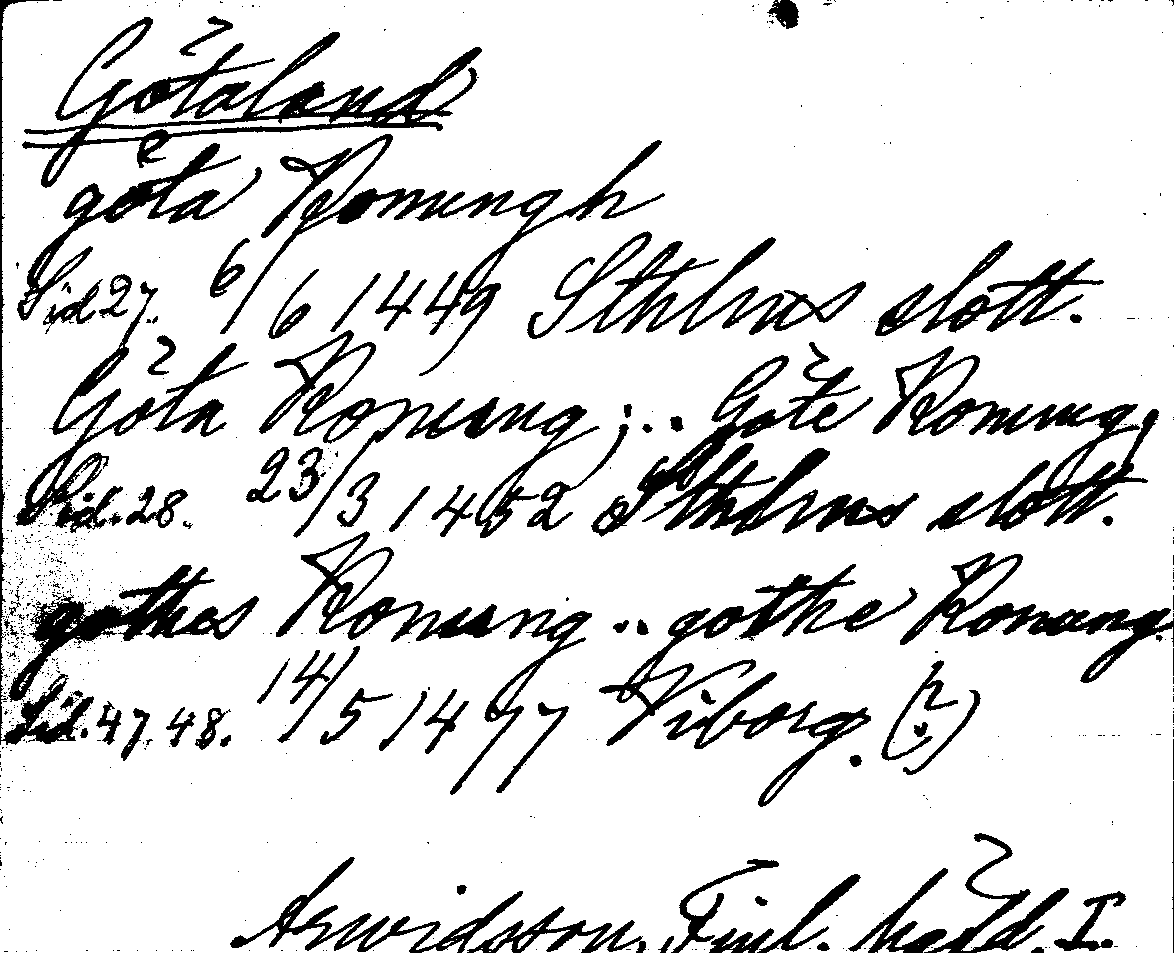 Götaland
göta Konungh
Sid 27. 6/6 1449 Sthlms slott.
Göta Konung;.. Göte Konung,
Sid. 28. 23/3 1452 Sthlms slott.
gothes Konung .. gothe Konung.
Sid. 47. 48. 14/5 1477 Viborg. (?)
Arwidsson, Finl. hand. I.